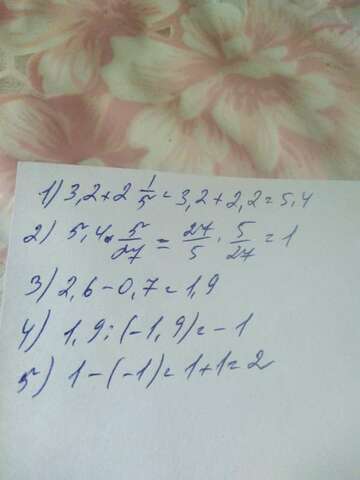 1) 3,2 + 2 1/5 = 3,2 + 2,2 = 5,4
2) 5,4 · 5/27 = 27/5 · 5/27 = 1
3) 2,6 - 0,7 = 1,9
4) 1,9 : (-1,9) = -1
5) 1 - (-1) = 1 + 1 = 2